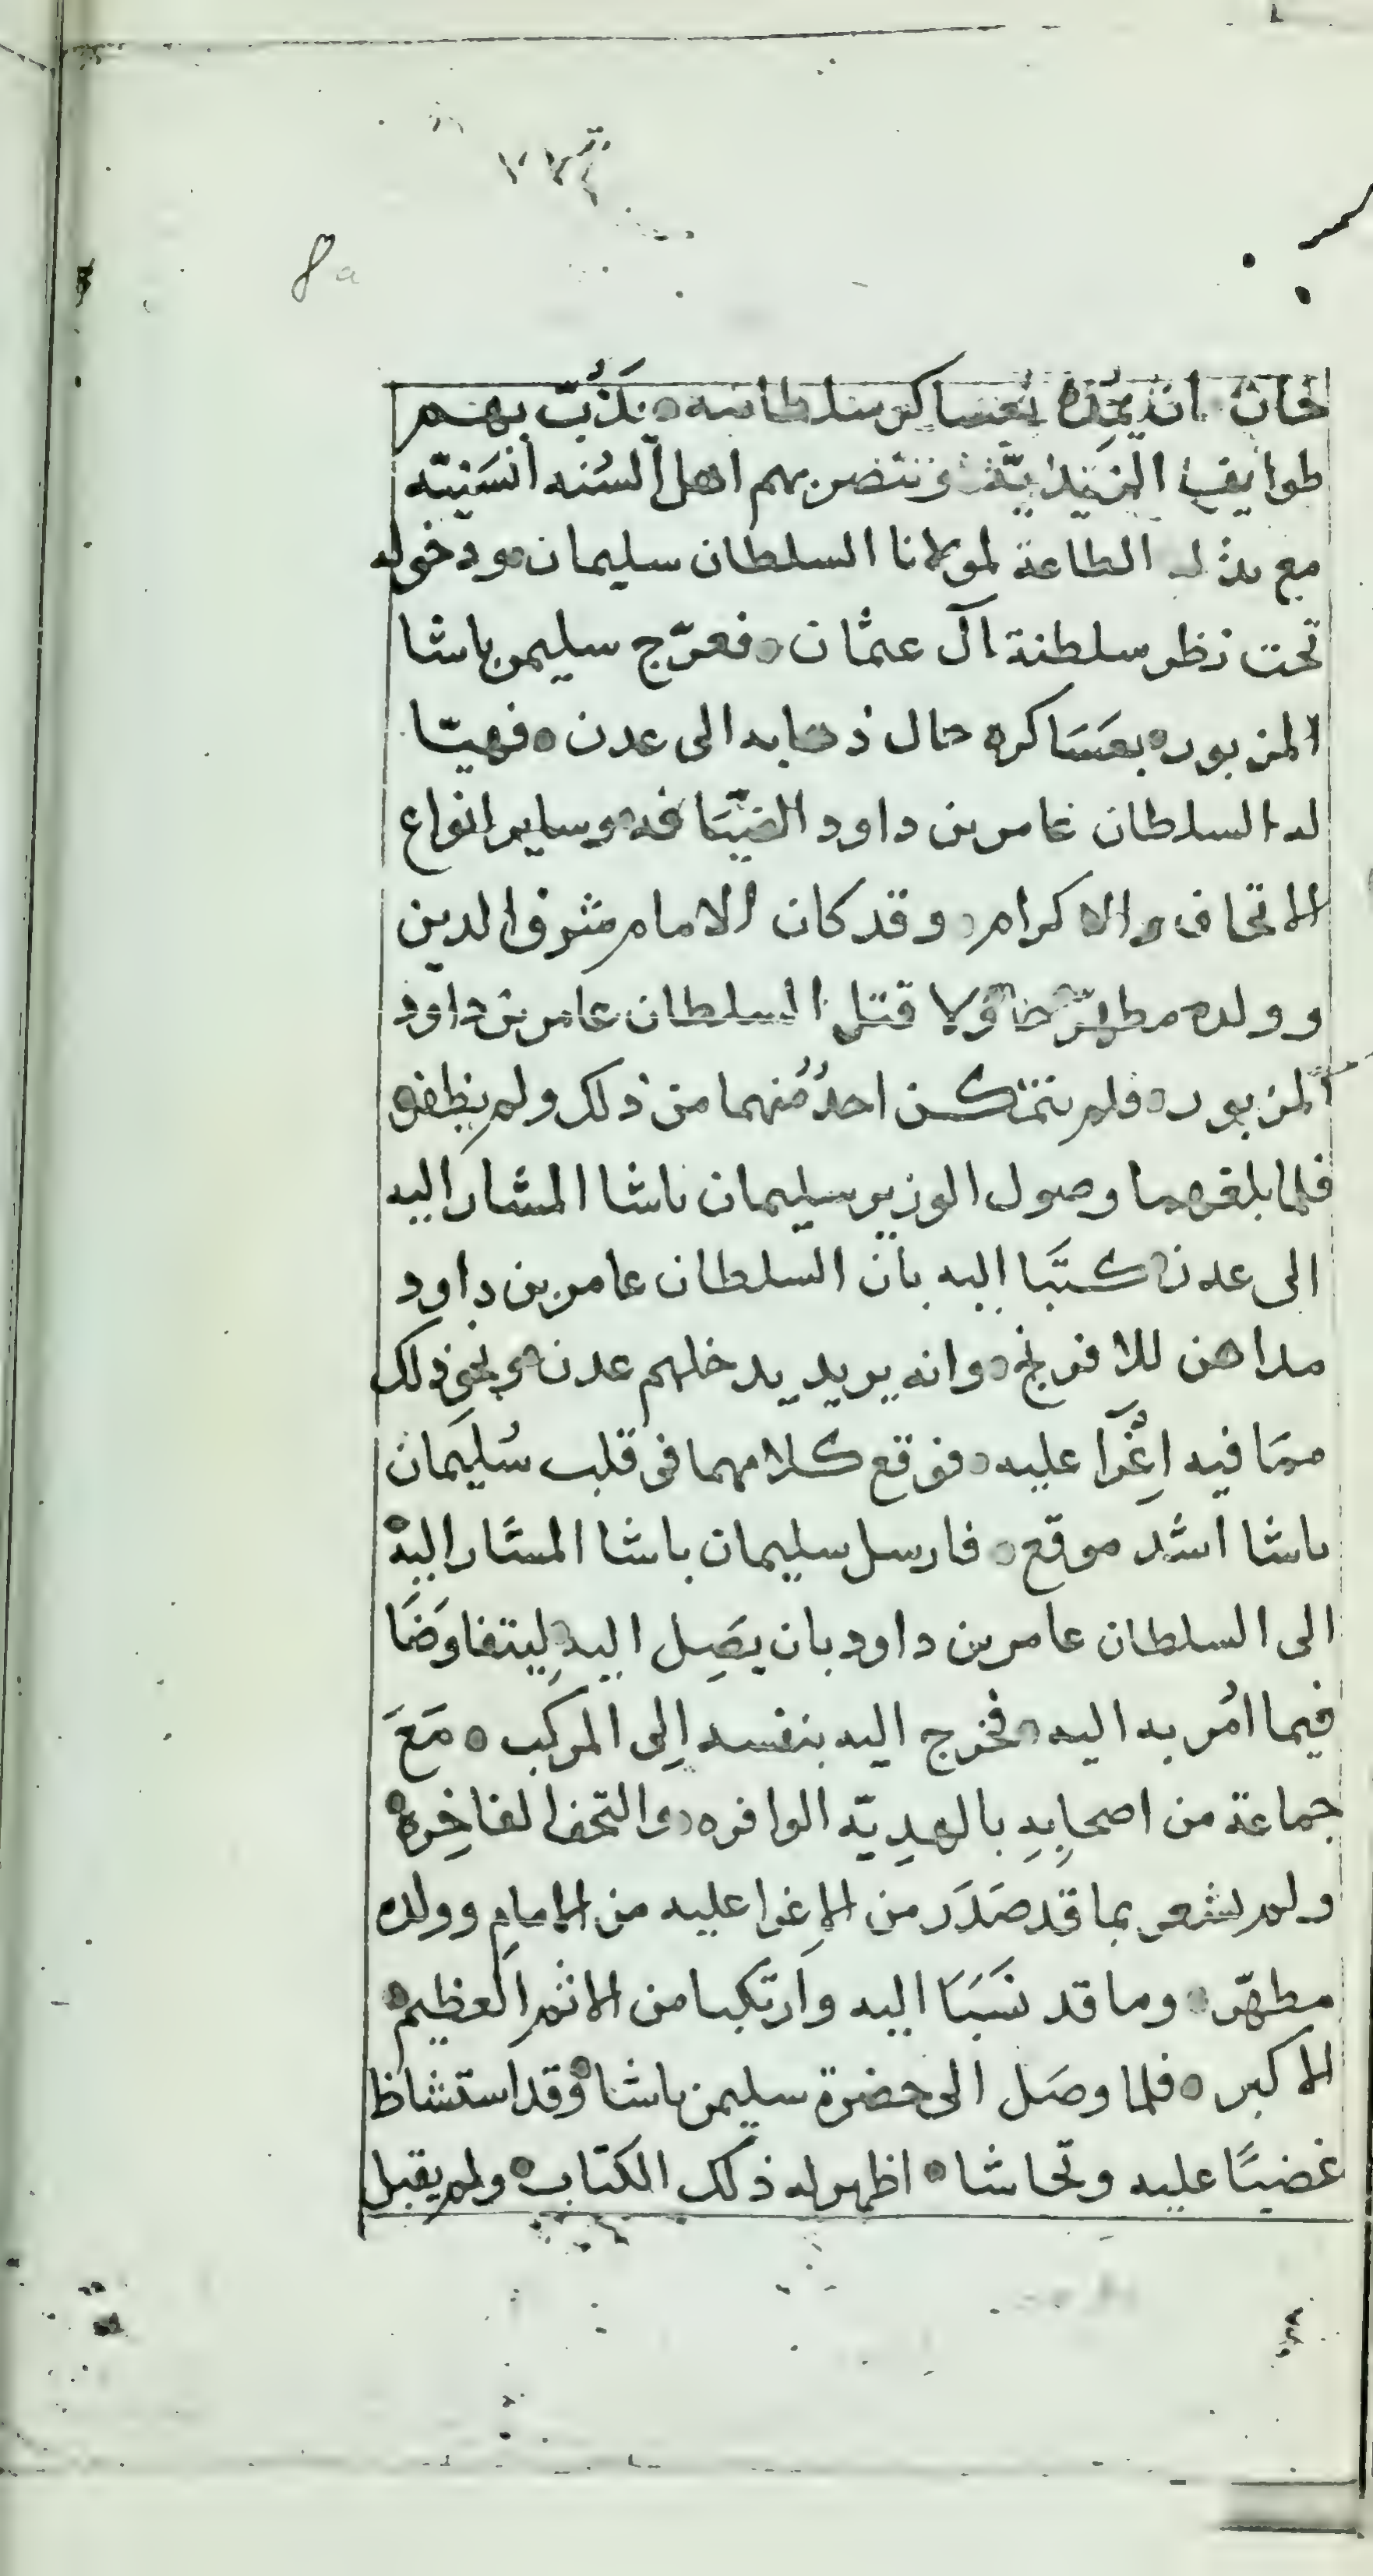 8a
خان ان يمده بعساكر سلطانيه ٥ يَذُبّ بهم
طوايف الزيديّة وينتصر بهم اهل السُنه السَنيّه
مع بذله الطاعة لمولانا السلطان سليمان ٥ ودخوله
تحت نظر سلطنة آل عثمان ٥ فعرّج سليمن باشا
المزبور ٥ بعَسَاكره حال ذهابه الى عدن ٥ فهيّا
له السلطان عامر بن داود الضيَافه ٥ وساير انواع
الاتحاف والاكرام ٥ وقد كان الامام شرف الدين
وولده مطهّر حاولا قتل السلطان عامر بن داود
المزبور ٥ فلم يتمكن احدٌ مُنهما من ذلك ولم يظفر
فلما بلغهما وصول الوزير سليمان باشا المشار اليه
الى عدن كتَبا اليه بان السلطان عامر بن داود
مداهن للافرنج ٥ وانه يريد يدخلهم عدن ٥ ونحو ذلك
ممَا فيه اِغْرآ عليه ٥ فوقع كلامهما في قلب سُليمَان
باشا اشد موقع ٥ فارسل سليمان باشا المشار اليه ٥
الى السلطان عامر بن داود بان يصَِل اليه لِيتفاوَضَا
فيما امُر به اليه ٥ فخرج اليه بنفسه اِلى المركب ٥ مَعَ
جماعة من اصحابِهِ بالهدِيّه الوافره ٥ والتحف الفاخِره ٥
ولم يشعر بما قد صَدَر من الاِغرا عليه من الامام وولده
مطهّر ٥ وما قد نسَبَا اليه وارتكبا من الاثم العظيم ٥
الاكبر ٥ فلما وصَل الى حضرة سليمن باشا ٥ وقد استشاظ
غضبًا عليه وتحاشا ٥ اظهر له ذلك الكتاب ٥ ولم يقبل